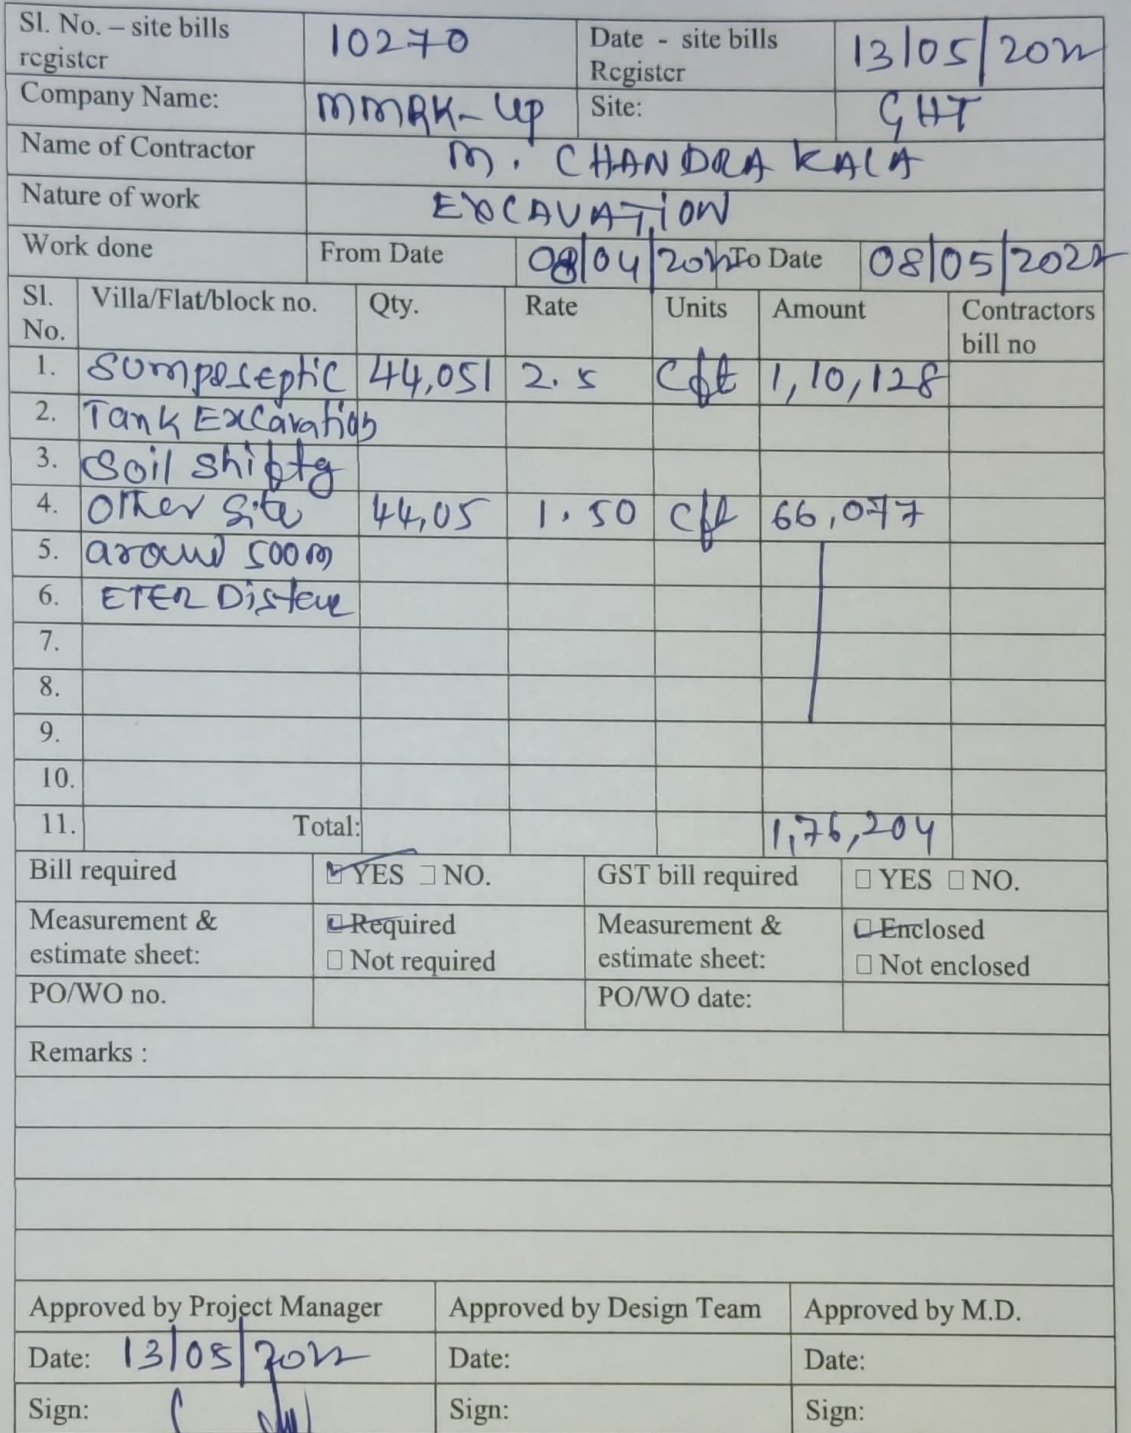 Sl. No. – site bills register 10270 Date - site bills Register 13/05/2022
Company Name: MMRK-UP Site: GHT
Name of Contractor M. CHANDRA KALA
Nature of work EXCAVATION
Work done From Date 08/04/2022 To Date 08/05/2022
Sl. No. Villa/Flat/block no. Qty. Rate Units Amount Contractors bill no
1. Sumposeptic 44,051 2.5 Cft 1,10,128
2. Tank Excavation
3. Soil Shiftg
4. Other Site 44,05 1.50 Cft 66,077
5. around 500m
6. ETER
7.
8.
9.
10.
11. Total: 1,76,204
Bill required ☑ YES ☐ NO. GST bill required ☐ YES ☐ NO.
Measurement & estimate sheet: ☑ Required ☐ Not required Measurement & estimate sheet: ☑ Enclosed ☐ Not enclosed
PO/WO no. PO/WO date:
Remarks :
Approved by Project Manager Approved by Design Team Approved by M.D.
Date: 13/05/2022 Date: Date:
Sign: Sign: Sign: